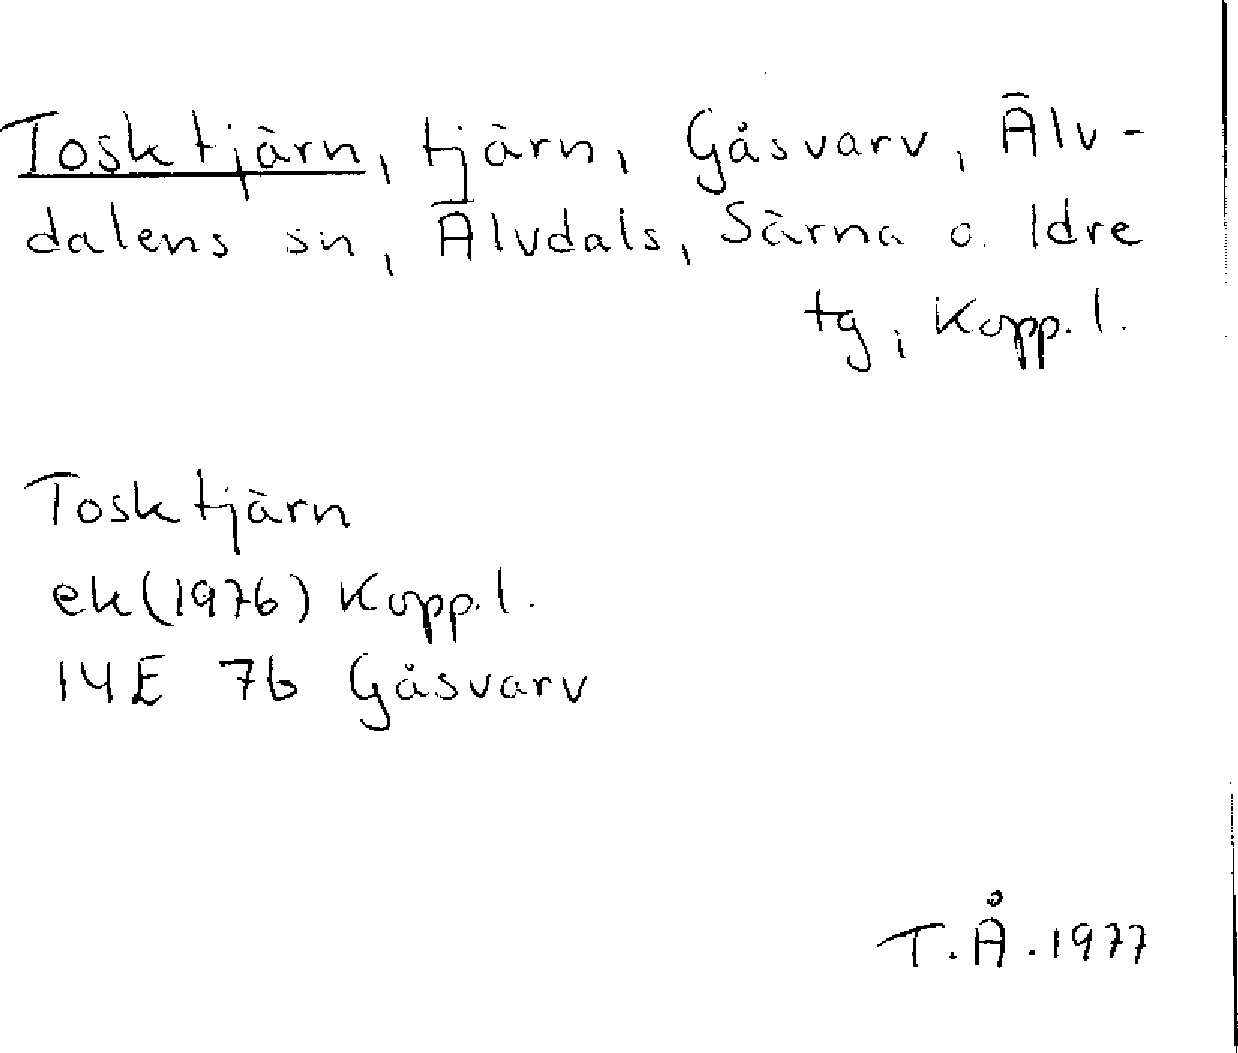 Tosktjärn, tjärn, Gåsvarv, Älv-
dalens sn, Älvdals, Särna o. Idre
tg, Kopp. l.
Tosktjärn
ek (1976) Kopp. l.
14E 7b Gåsvarv
T.Å. 1977